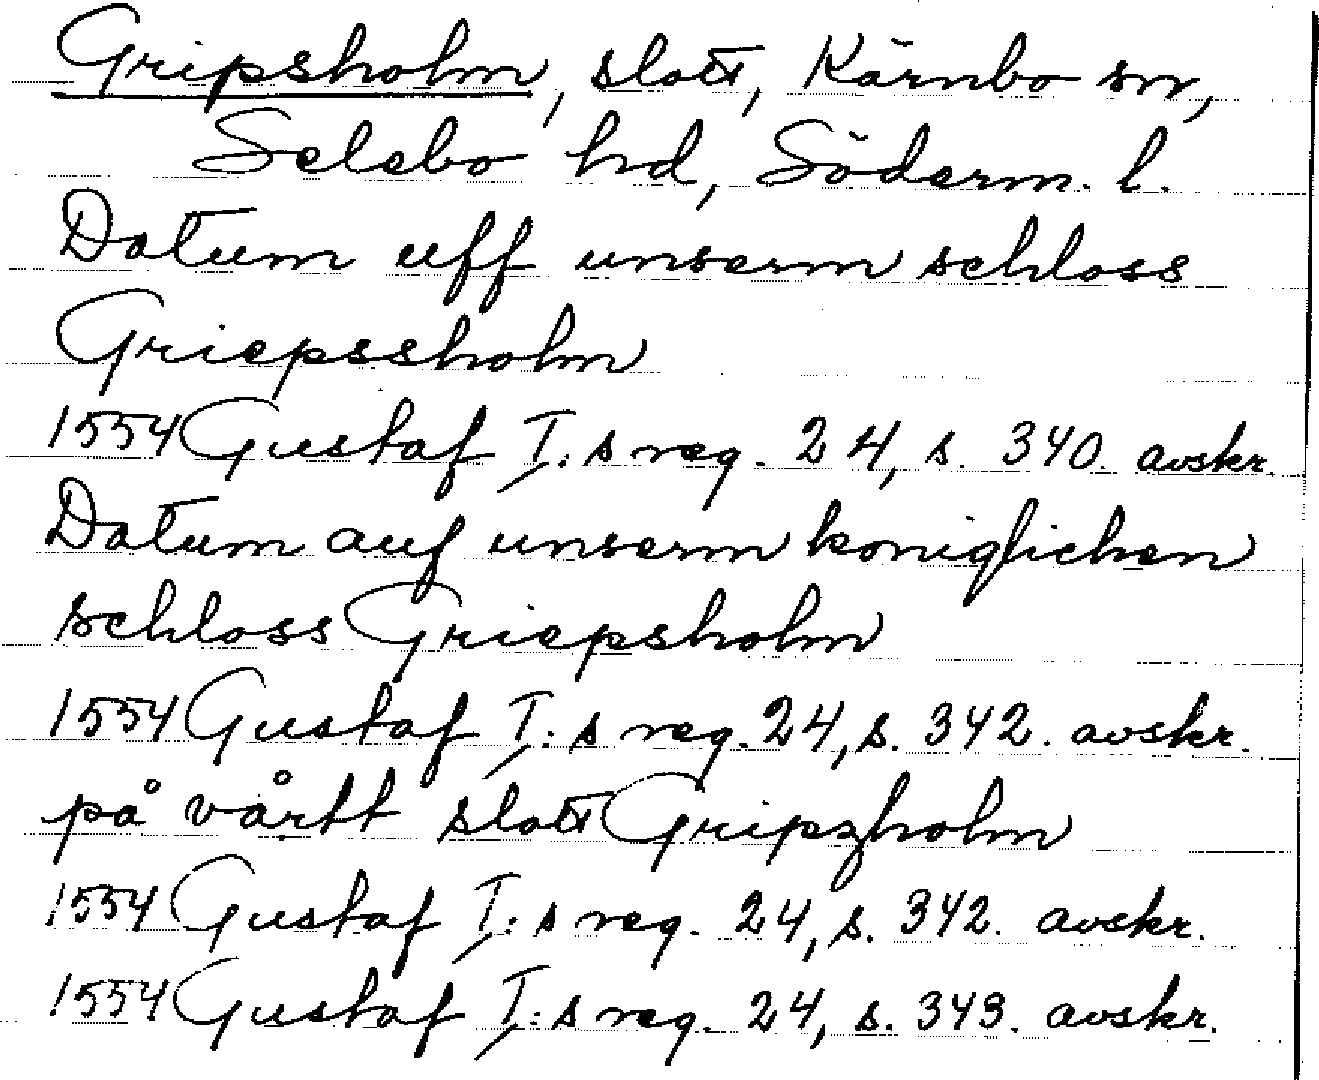 Gripsholm, slott, Kärnbo sn,
Selebo hd, Söderm. l.
Datum uff unserm schloss
Griepssholm
1554 Gustaf I:s reg. 24, s. 340. avskr.
Datum auf unserm koniglichen
schloss Griepsholm
1554 Gustaf I:s reg. 24, s. 342. avskr.
på vårtt slott Gripzholm
1554 Gustaf I:s reg. 24, s. 342. avskr.
1554 Gustaf I:s reg. 24, s. 343. avskr.